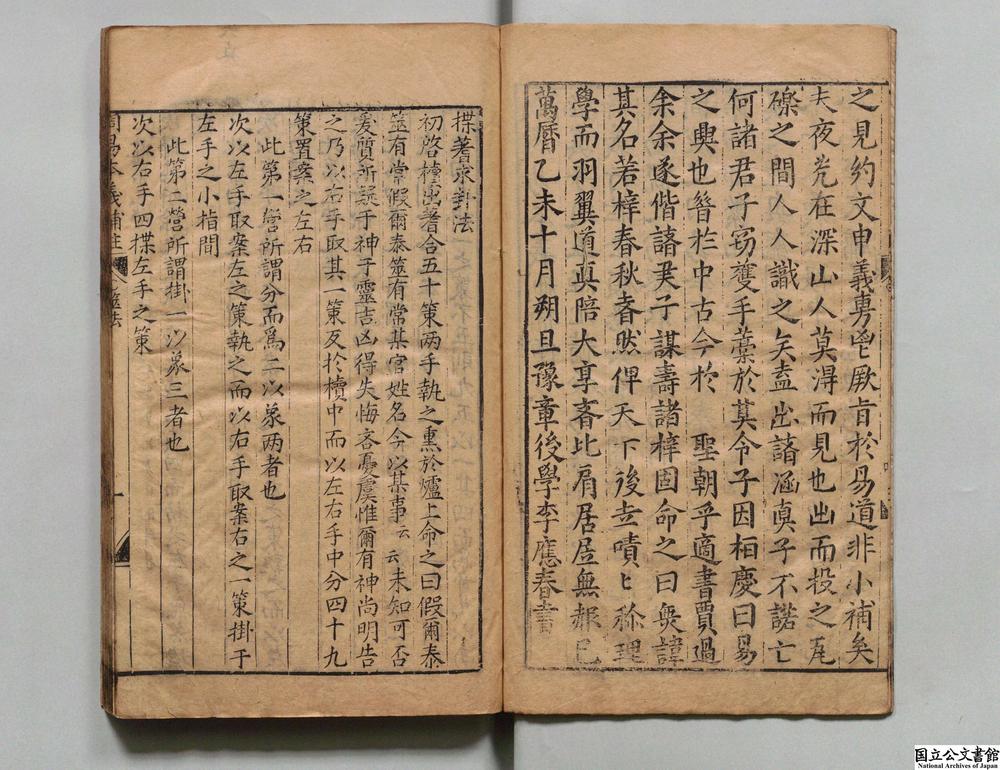 之見約文申義旉鬯厥㫖於易道非小補矣
夫夜光在深山人莫淂而見也出而投之瓦
礫之間人人識之矣盍出諸涵眞子不諾亡
何諸君子窃蒦手藁於其令子因相慶曰易
之興也昝扵中古今於　聖朝乎適書賈過
余余遂偕諸君子謀壽諸梓固命之曰奥諱
其名若梓春秋者然俾天下後丗嘖〻稱理
學而羽翼道眞陪大享者比肩居㞐無郝巳
萬曆乙未十月朔旦豫章後學李應春書
揲蓍求卦法
初啓櫝出蓍合五十策两手執之熏於爐上命之曰假爾泰
筮有常假爾泰筮有常某官姓名今以某事云云未知可否
爰質所疑于神于靈吉凶得失悔吝憂虞惟爾有神尚明告
之乃以右手取其一策反於櫝中而以左右手中分四十九
策置案之左右
此第一營所謂分而爲二以象两者也
次以左手取案左之策執之而以右手取案右之一策掛于
左手之小指間
此第二營所謂掛一以象三者也
次以右手四揲左手之策
周易本義補註
筮法
国立公文書館
National Archives of Japan